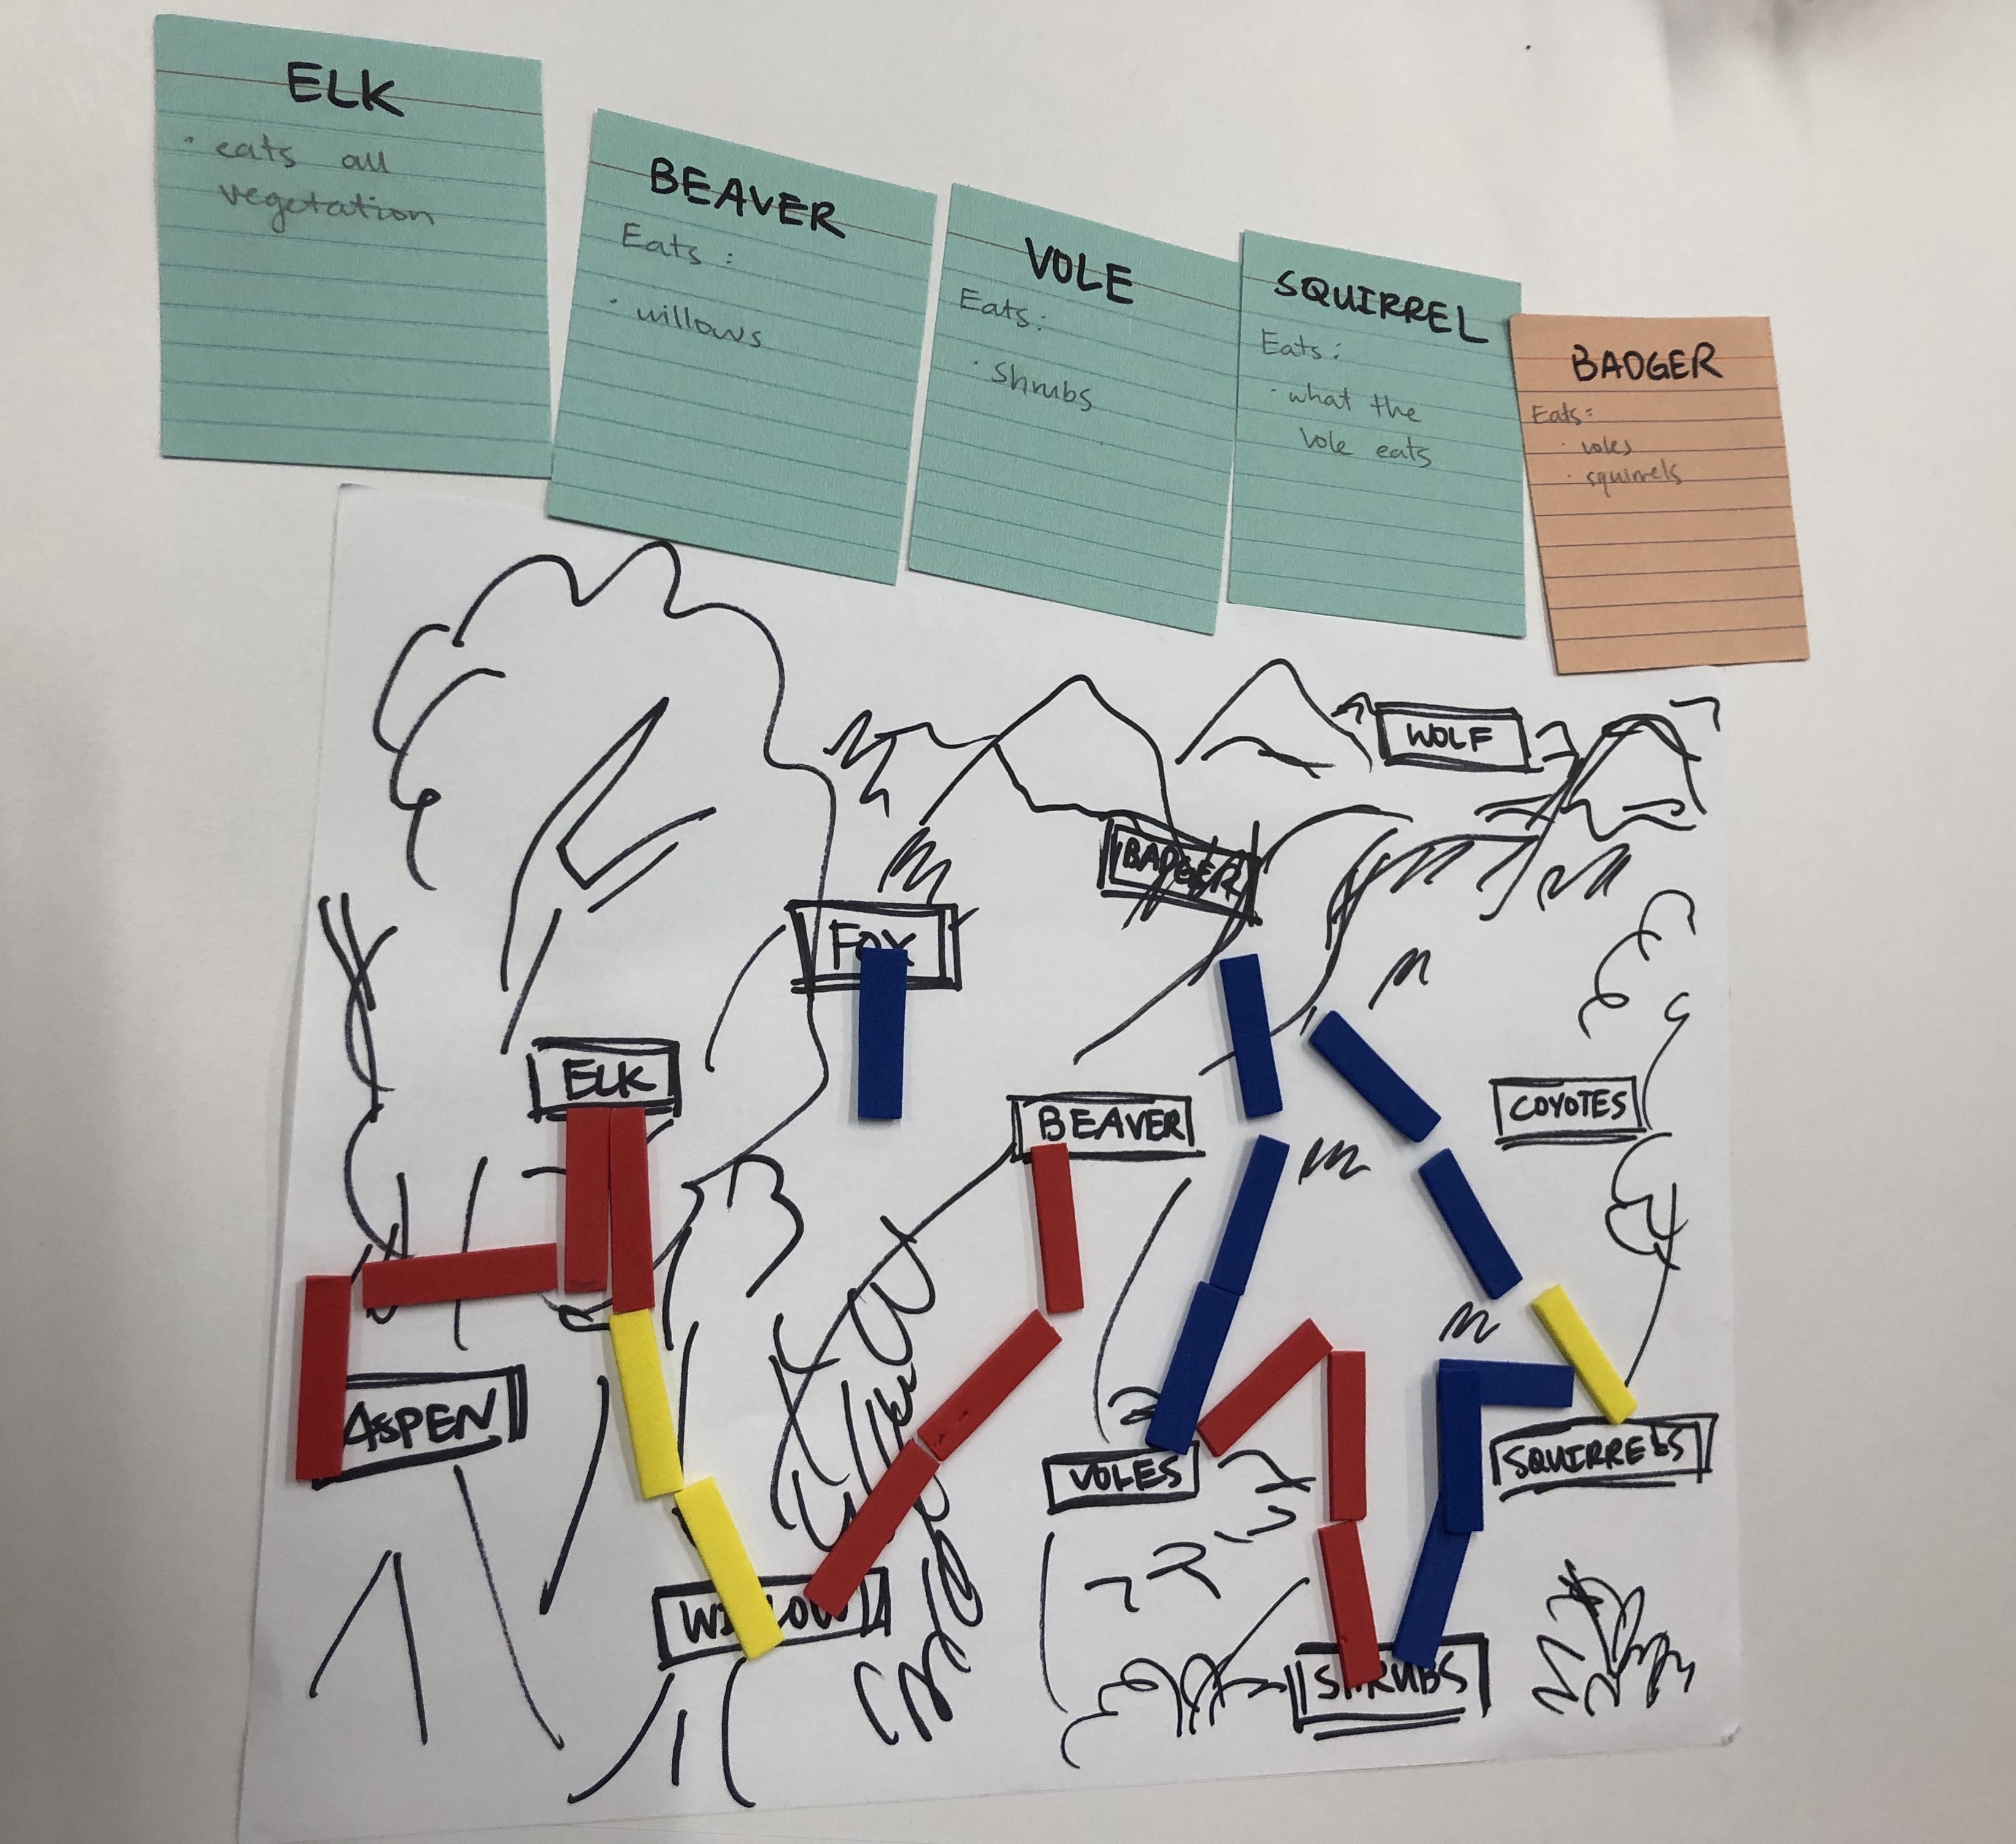 ELK
· eats all
vegetation
BEAVER
Eats :
· willows
VOLE
Eats:
· Shrubs
SQUIRREL
Eats:
· what the
Vole eats
BADGER
Eats:
· voles
· squirrels
WOLF
BADGER
FOX
ELK
BEAVER
COYOTES
ASPEN
VOLES
SQUIRRELS
WILLOW
SHRUBS